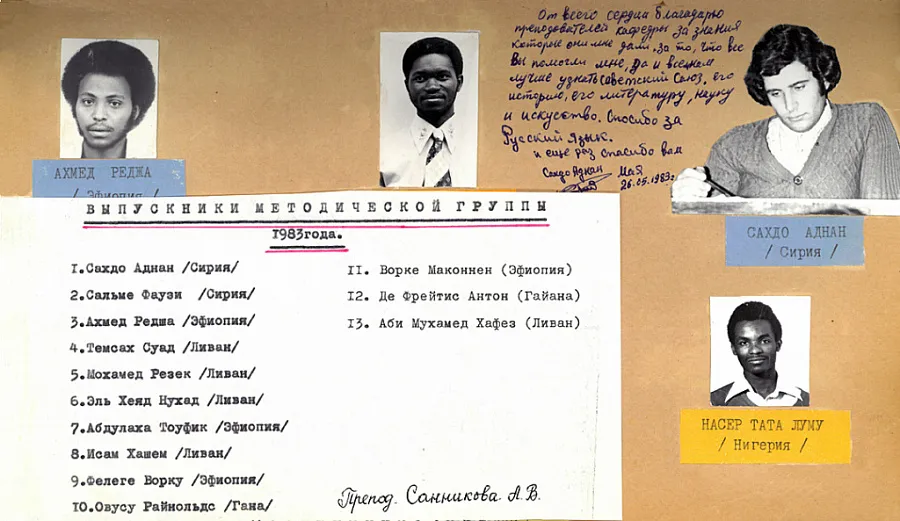 От всего сердца благодарю
преподователей кафедры за знания
которые они мне дали, за то, что все
Вы помогли мне, да и всем
лучше узнать советский Союз, его
историю, его литературу, науку
и искусство. Спосибо за
Русский язык.
и еще раз спасибо вам
Сахдо Аднан Мая
26.05.1983г.
АХМЕД РЕДЖА
/ Эфиопия /
САХДО АДНАН
/ Сирия /
НАСЕР ТАТА ЛУМУ
/ Нигерия /
ВЫПУСКНИКИ МЕТОДИЧЕСКОЙ ГРУППЫ
1983года.
1.Сахдо Аднан /Сирия/
2.Сальме Фаузи /Сирия/
3.Ахмед Редша /Эфиопия/
4.Темсах Суад /Ливан/
5.Мохамед Резек /Ливан/
6.Эль Хеяд Нухад /Ливан/
7.Абдулаха Тоуфик /Эфиопия/
8.Исам Хашем /Ливан/
9.Фелеге Ворку /Эфиопия/
10.Овусу Райнольдс /Гана/
11. Ворке Маконнен (Эфиопия)
12. Де Фрейтис Антон (Гайана)
13. Аби Мухамед Хафез (Ливан)
Препод. Санникова А.В.